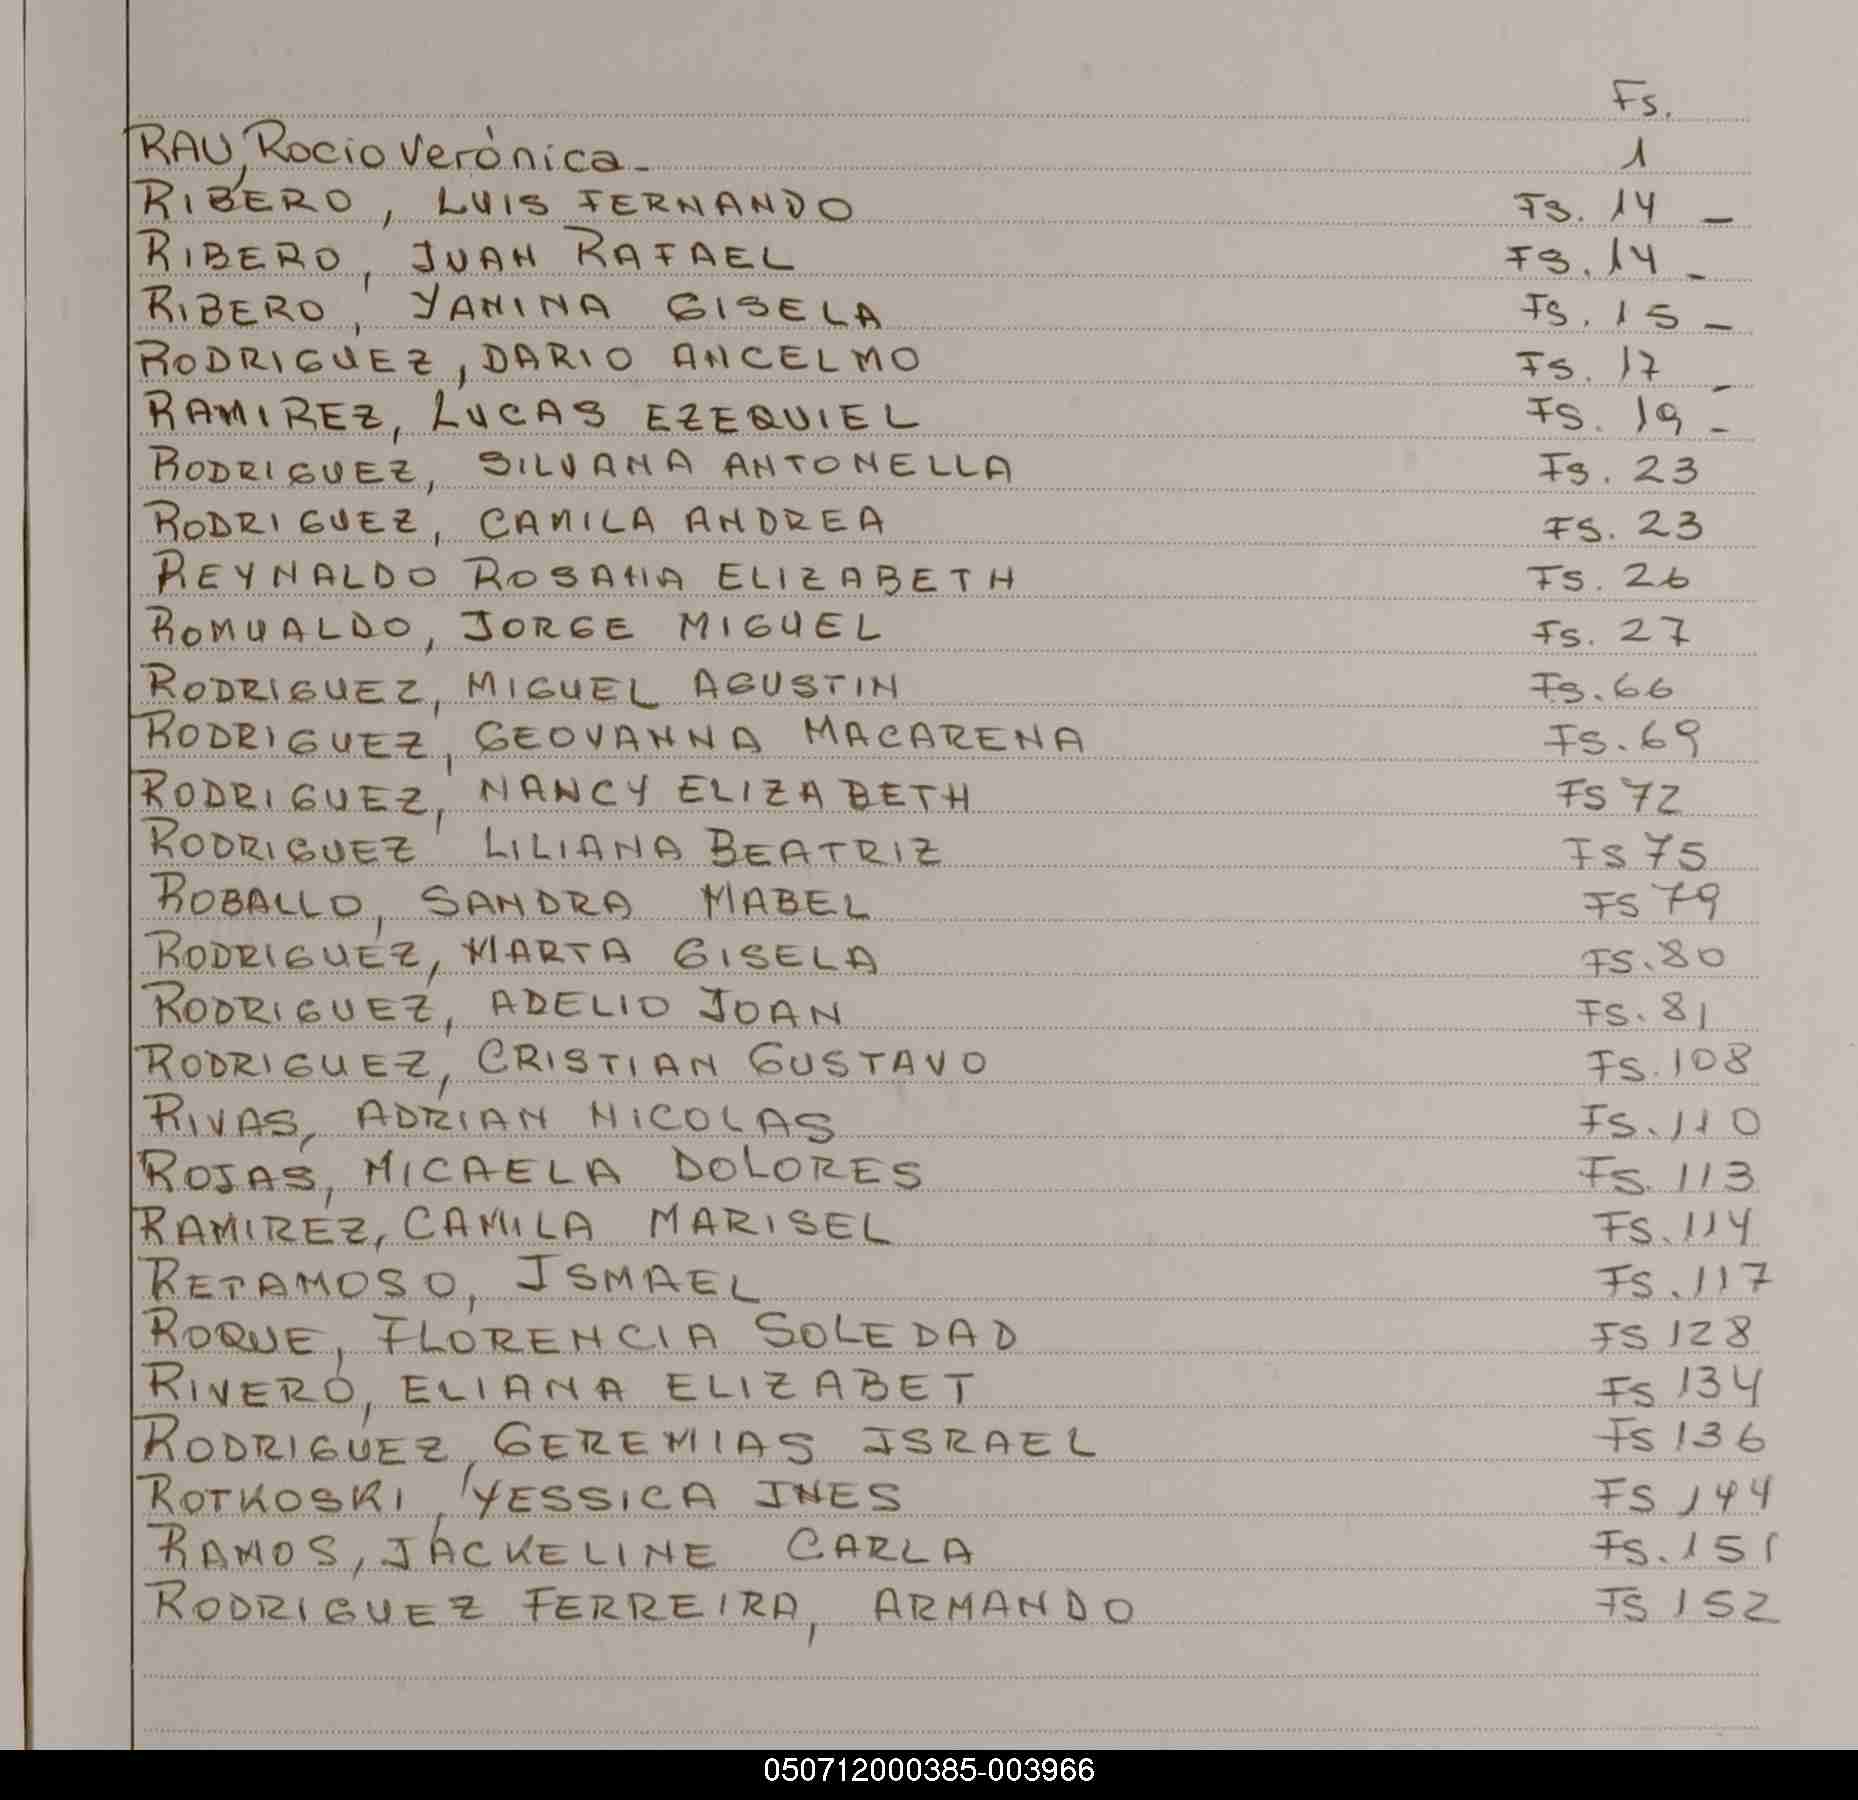 Fs.
RAU, Rocio Verónica - 1
RIBERO, LUIS FERNANDO Fs. 14 -
RIBERO, JUAN RAFAEL Fs. 14 -
RIBERO, YANINA GISELA Fs. 15 -
RODRIGUEZ, DARIO ANCELMO Fs. 17 -
RAMIREZ, LUCAS EZEQUIEL Fs. 19 -
RODRIGUEZ, SILVANA ANTONELLA Fs. 23
RODRIGUEZ, CAMILA ANDREA Fs. 23
REYNALDO ROSANA ELIZABETH Fs. 26
ROMUALDO, JORGE MIGUEL Fs. 27
RODRIGUEZ, MIGUEL AGUSTIN Fs. 66
RODRIGUEZ, GEOVANNA MACARENA Fs. 69
RODRIGUEZ, NANCY ELIZABETH Fs 72
RODRIGUEZ, LILIANA BEATRIZ Fs 75
ROBALLO, SANDRA MABEL Fs 79
RODRIGUEZ, MARTA GISELA Fs. 80
RODRIGUEZ, ADELIO JOAN Fs. 81
RODRIGUEZ, CRISTIAN GUSTAVO Fs. 108
RIVAS, ADRIAN NICOLAS Fs. 110
ROJAS, MICAELA DOLORES Fs. 113
RAMIREZ, CAMILA MARISEL Fs. 114
RETAMOSO, ISMAEL Fs. 117
ROQUE, FLORENCIA SOLEDAD Fs 128
RIVERO, ELIANA ELIZABET Fs 134
RODRIGUEZ, GEREMIAS ISRAEL Fs 136
ROTKOSKI, YESSICA INES Fs 144
RAMOS, JACKELINE CARLA Fs. 151
RODRIGUEZ FERREIRA, ARMANDO Fs 152
050712000385-003966